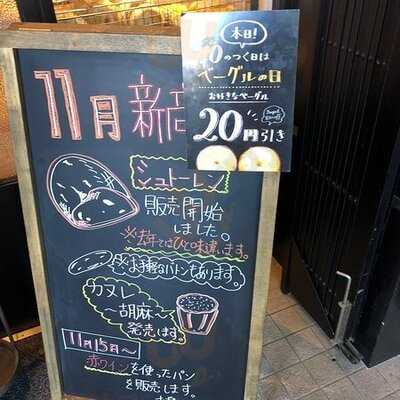 本日!
0のつく日は
ベーグルの日
お好きなベーグル
20円引き
11月 新商
シュトーレン
販売開始
しました。
※去年とはひと味違います。
お手軽なバトンもあります。
カヌレ
〜胡麻〜
発売です。
11月15日〜
赤ワインを使ったパン
を販売します。